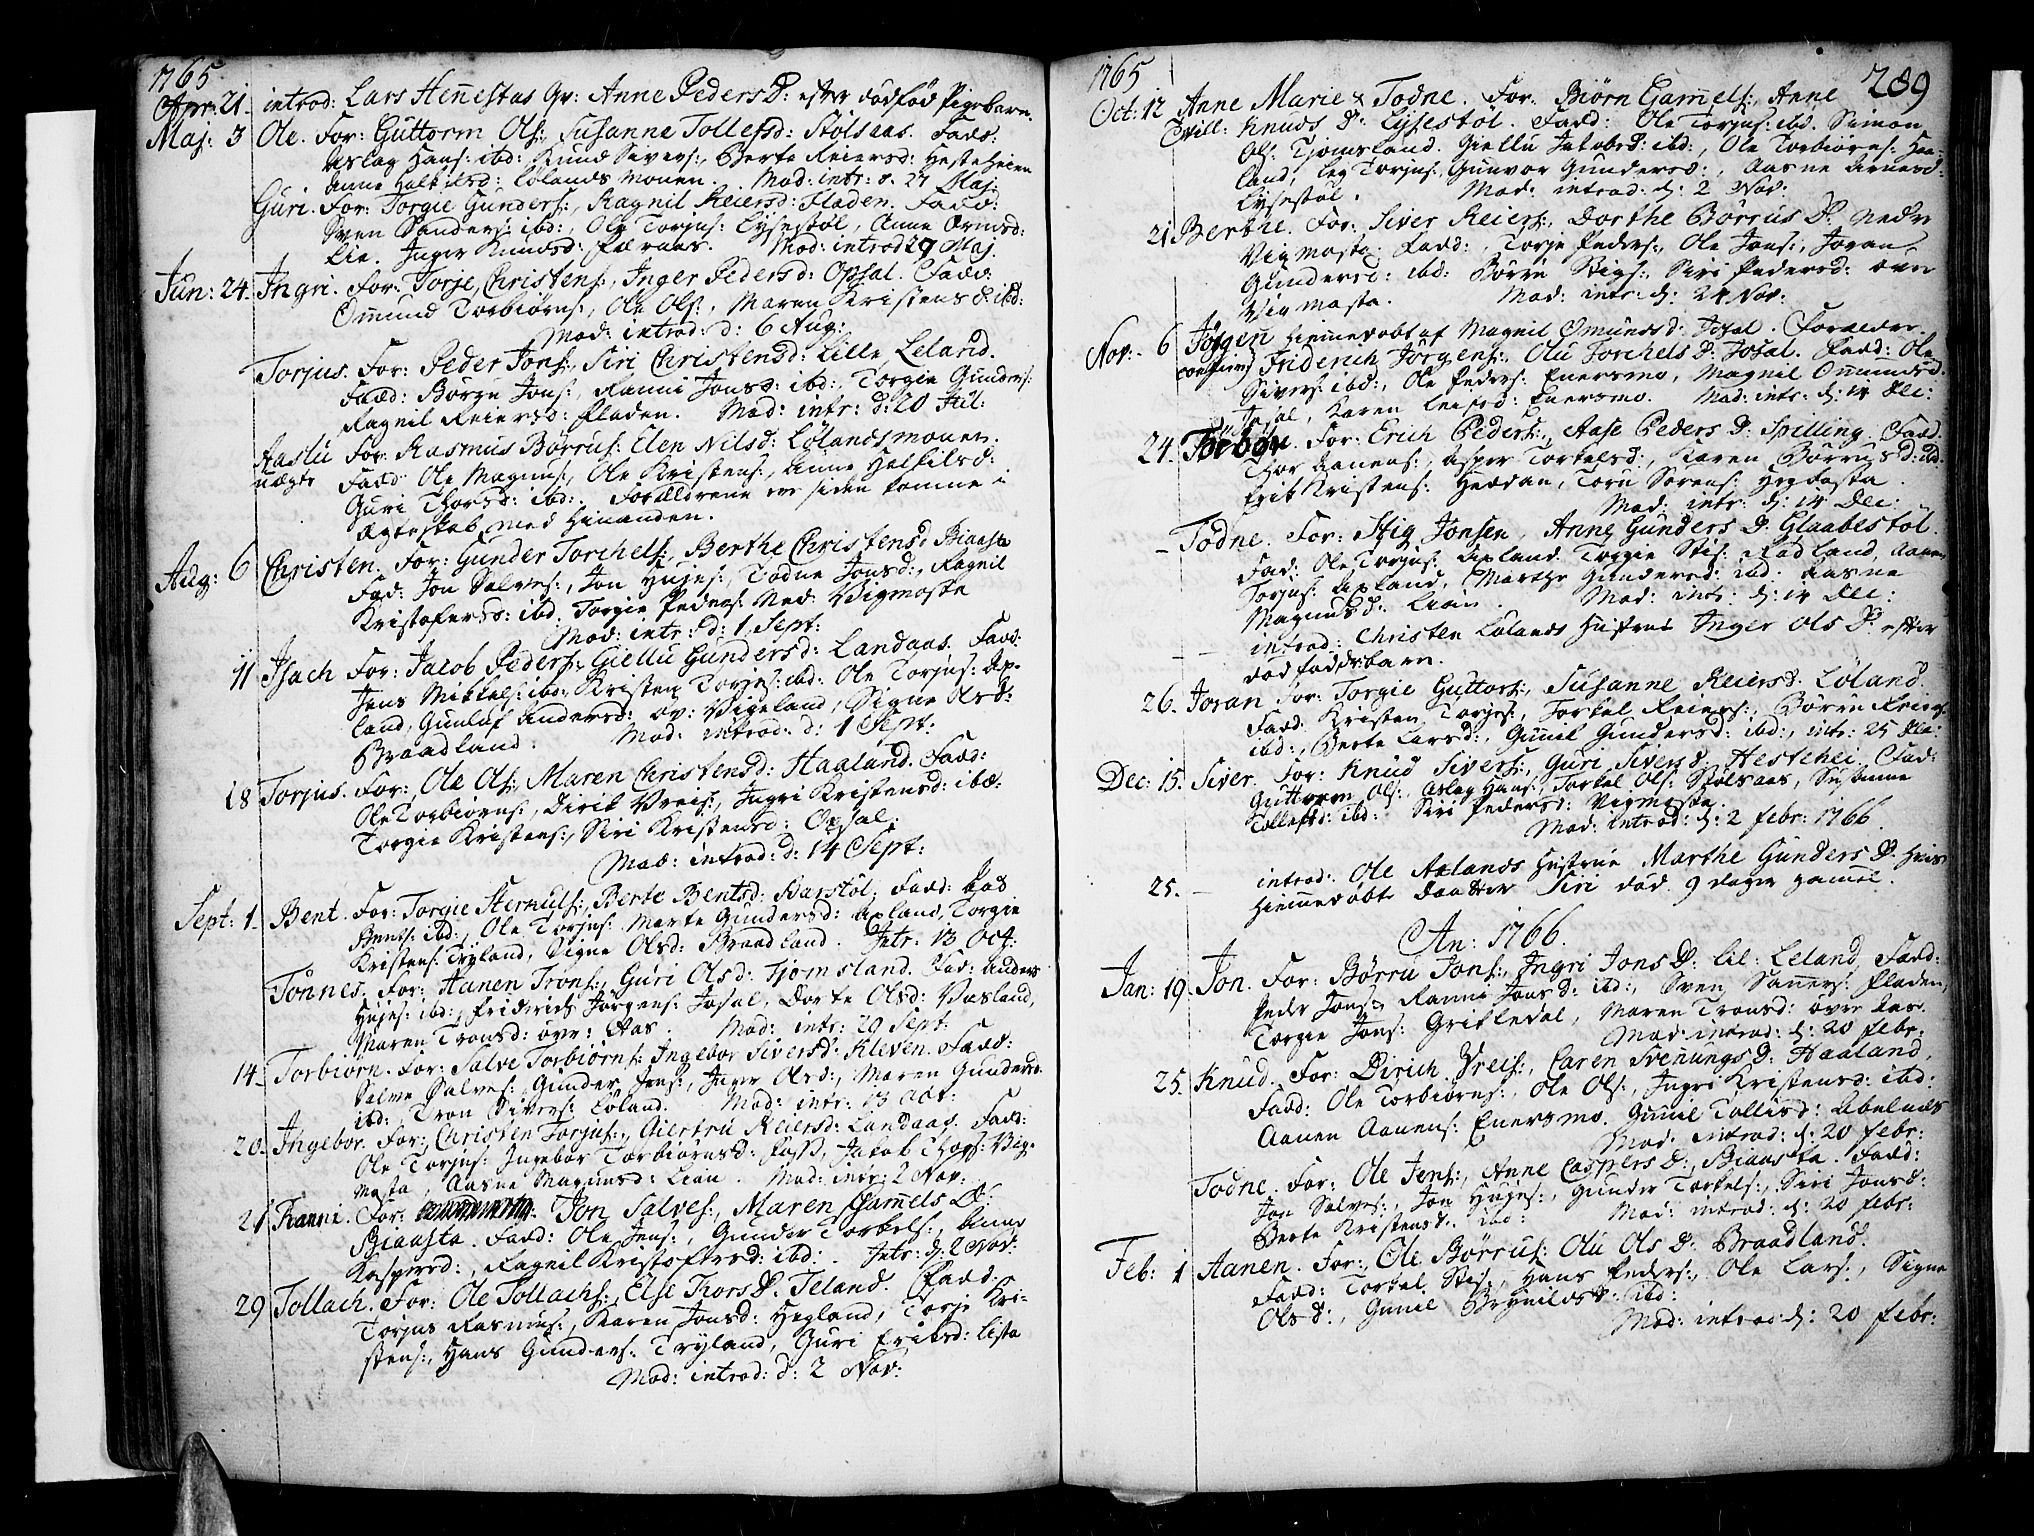 1765
Apr: 21. introd: Lars Hennestas Qv: Anne PedersD: efter dødfød Pigebarn.
Maj: 3 Ole. For: Guttorm Ols:, Susanne Tollefsd: Stølsaas. Fadd:
Aslag Hans: ibd: Knud Sivers:, Berte Reiersd: Hesteheien
Anne Halkilsd: Lølands monen. Mod: intr: d. 27 Maj.
Guri. For: Torgie Gunders:, Ragnil Reiersd: Fladen. Fadd:
Sven Sanders: ibd:, Ole Torjus: Lysestøl, Anne Ormsd:
Lie. Inger Knudsd: Aaas. Mod: introd 29 Maj.
Jun: 24. Ingri. For: Torje Christens:, Inger Pedersd: Opsal. Fadd:
Omund Torbiørns:, Ole Ols:, Maren Kristensd: ibd:
Mod: introd: d: 6 Aug:
Torjus. For: Peder Jons:, Siri Christensd: Lille Leland.
Fadd: Børge Jons:, Ranni Jonsd: ibd:, Torgie Gunders:
Ragnil Reiersd: Fladen. Mod: intr: d: 20 Jul:
Aaslu For: Rasmus Børrus: Elen Nilsd: Lølandsmonen.
uægte Fadd: Ole Magnus:, Ole Kristens:, Anne Halkilsd:
Guri Thorsd: ibd:. Forældrene ere siden komne i
Ægteskab med hinanden.
Aug: 6 Christen. For: Gunder Torchels:, Berthe Christensd Biaasta
Fad: Jon Salves:, Jon Hujes:, Todne Jonsd:, Ragnil
Kristofersd: ibd. Torgie Peders: Ned: Vigmosta
Mod: intr: d: 1 Sept:
11 Isach For: Jacob Peders:, Giellu Gundersd: Landaas. Fadd:
Jens Mikkels: ibd:, Kristen Torjes: ibd: Ole Torjus: Ap-
land, Gunlof Andersd: ov: Vigeland, Signe Olsd:
Braadland. Mod: introd: d: 1 Sept:
18 Torjus. For: Ole Ols:, Maren Christensd: Haaland. Fadd:
Ole Torbiørns:, Dirik Vreis:, Ingri Kristensd: ibd:
Torgie Kristens:, Siri Kristensd: Opsal:
Mod: introd: d: 14 Sept:
Sept: 1. Bent. For: Torgie Sternuls:, Berte Bentsd: Harstøl. Fadd:
Bents: ibd:, Ole Torjus: Marte Gundersd: Apland, Torgie
Kristens: Tryland, Signe Olsd: Braadland. Intr: 13 Oct:
Tønnes. For: Aanen Trons:, Guri Olsd: Tjomsland. Fad: Anders
Hujes: ibd:, Friderich Jørgens: Josal, Dorte Olsd: Vasland,
Maren Tronsd: övr: Aas. Mod: intr: 29 Sept:
14. Torbiørn. For: Salve Torbiørns: Ingebor Siversd: Kleven. Fadd:
Salve Salves:, Gunder Jens:, Inger Olsd:, Maren Gundersd
ibd: Tron Sivers: Løland. Mod: intr: 13 Oct:
20. Ingebor. For: Christen Torjus:, Giertru Reiersd: Landaas. Fadd:
Ole Torjus: Ingebor Torbiørnsd: Foss, Jakob Thors: Vig-
mosta, Aasne Magnusd: Lian. Mod: intr: 2 Nov:
21 Ranni. For: Jon Salves:, Maren Gamels D:
Biaasta. Fadd: Ole Jens:, Gunder Torkels:, Anne
Kaspersd:, Ragnil Kristofersd: ibd:. Intr: d: 2 Nov:
29 Tollach. For: Ole Tollachs:, Else ThorsD: Teland. Fadd:
Torjus Rasmus:, Karen Jonsd: Hegland, Torje Kri-
stens:, Hans Gunders: Tryland, Guri Eriksd: Lista
Mod: introd: d: 2 Nov:
1765
289
Oct: 12 Anne Marie & Todne. For: Biørn Gamels:, Anne
Tvill: Knuds D: Lysestøl. Fadd: Ole Torjus: ibd. Simon
Ols: Tjomsland. Giellu Jakobsd: ibd:, Ole Torbiørns: Haa-
land, Torjus:, Gunvor Gundersd:, Aasne Arnesd:
Lysestøl. Mod: introd: d: 2 Nov:
21 Berthe. For: Siver Reiers:, Dorthe Børrus D: nedre
Vigmosta. Fadd:, Torje Peders:, Ole Jons:, Joran
Gundersd: ibd: Børru Stigs:, Siri Pedersd: övre
Vigmosta. Mod: intr: d: 24 Nov:
Nov: 6 Jørgen hiemmedøbt af Magnil Omundsd: Josal. Forældre.
confirm) Friderich Jørgens:, Olu Torchels D: Josal. Fadd: Ole
Sivers: ibd:, Ole Peders: Enersmo, Magnil Omundsd:
Josal, Karen Leifsd: Enersmo. Mod: intr: d: 14 Dec:
24. Torbor. For: Erich Peders:, Aase Peders D: Spilling. Fadd:
Thor Aanens:, Asper Torkelsd:, Karen Børrusd: ibd:
Erik Kristens: Heddan, Toru Sørens: Hegdasta.
Mod: intr: d: 14 Dec:
– Todne. For: Stig Jonsen, Anne Gunders D: Glaabestøl.
Fad: Ole Torjus: Apland. Torgie Stis: Rødland, Aanen
Torjus: Apland, Marthe Gundersd: ibd: Aasne
Magnusd: Lian. Mod: intr: d: 14 Dec:
– introd: Christen Lølands Hustrue Inger Ols D: efter
dødføddbarn.
26. Joran For: Torgie Guttors:, Susanne Reiersd: Løland.
Fadd Kristen Torjes:, Torkel Reiers:, Børru Reiers:
ibd:, Berte Larsd:, Gunnil Gundersd: ibd:, intr: 25 Dec:
Dec: 15. Siver. For: Knud Sivers:, Guri Siversd: Hestehei. Fad:
Guttorm Ols:, Aslag Hans:, Torkel Ols: Stølsaas, Susanne
Tollefsd: ibd: Siri Pedersd: Vigmosta.
Mod: introd: d: 2 febr: 1766.
25. – introd: Ole Aalands Hustrue Marthe Gunders D: hvis
hiemmedøbte Daatter Siri død 9 dager gamel.
An: 1766.
Jan: 19. Jon. For: Børru Jons:, Ingri Jons D: lil: Leland. Fadd:
Peder Jons:, Ranni Jonsd: ibd:, Sven Sanners: Fladen,
Torgie Jons: Grikledal, Maren Tronsd: övre Aas.
Mod: introd: d: 20 febr:
25. Knud. For: Dirich Vreis:, Caren Svenungsd: Haaland.
Fadd: Ole Torbiørns:, Ole Ols:, Ingri Kristensd: ibd:
Aanen Aanens: Enersmo. Gunnil Tollisd: Abelnæs
Mod: introd: d: 20 febr:
Todne. For: Ole Jens:, Anne Caspers D: Biaasta. Fadd:
Jon Salves:, Jon Hujes:, Gunder Torkels:, Siri Jonsd:
Berte Kristensd: ibd: Mod: introd: d: 20 febr:
Feb: 1 Aanen. For: Ole Børrus: Olu Ols D: Braadland.
Fadd: Torkel Stis:, Hans Peders:, Ole Lars:, Signe
Ols D:, Gunil Brynildsd: ibd:
Mod: introd: d: 20 febr: